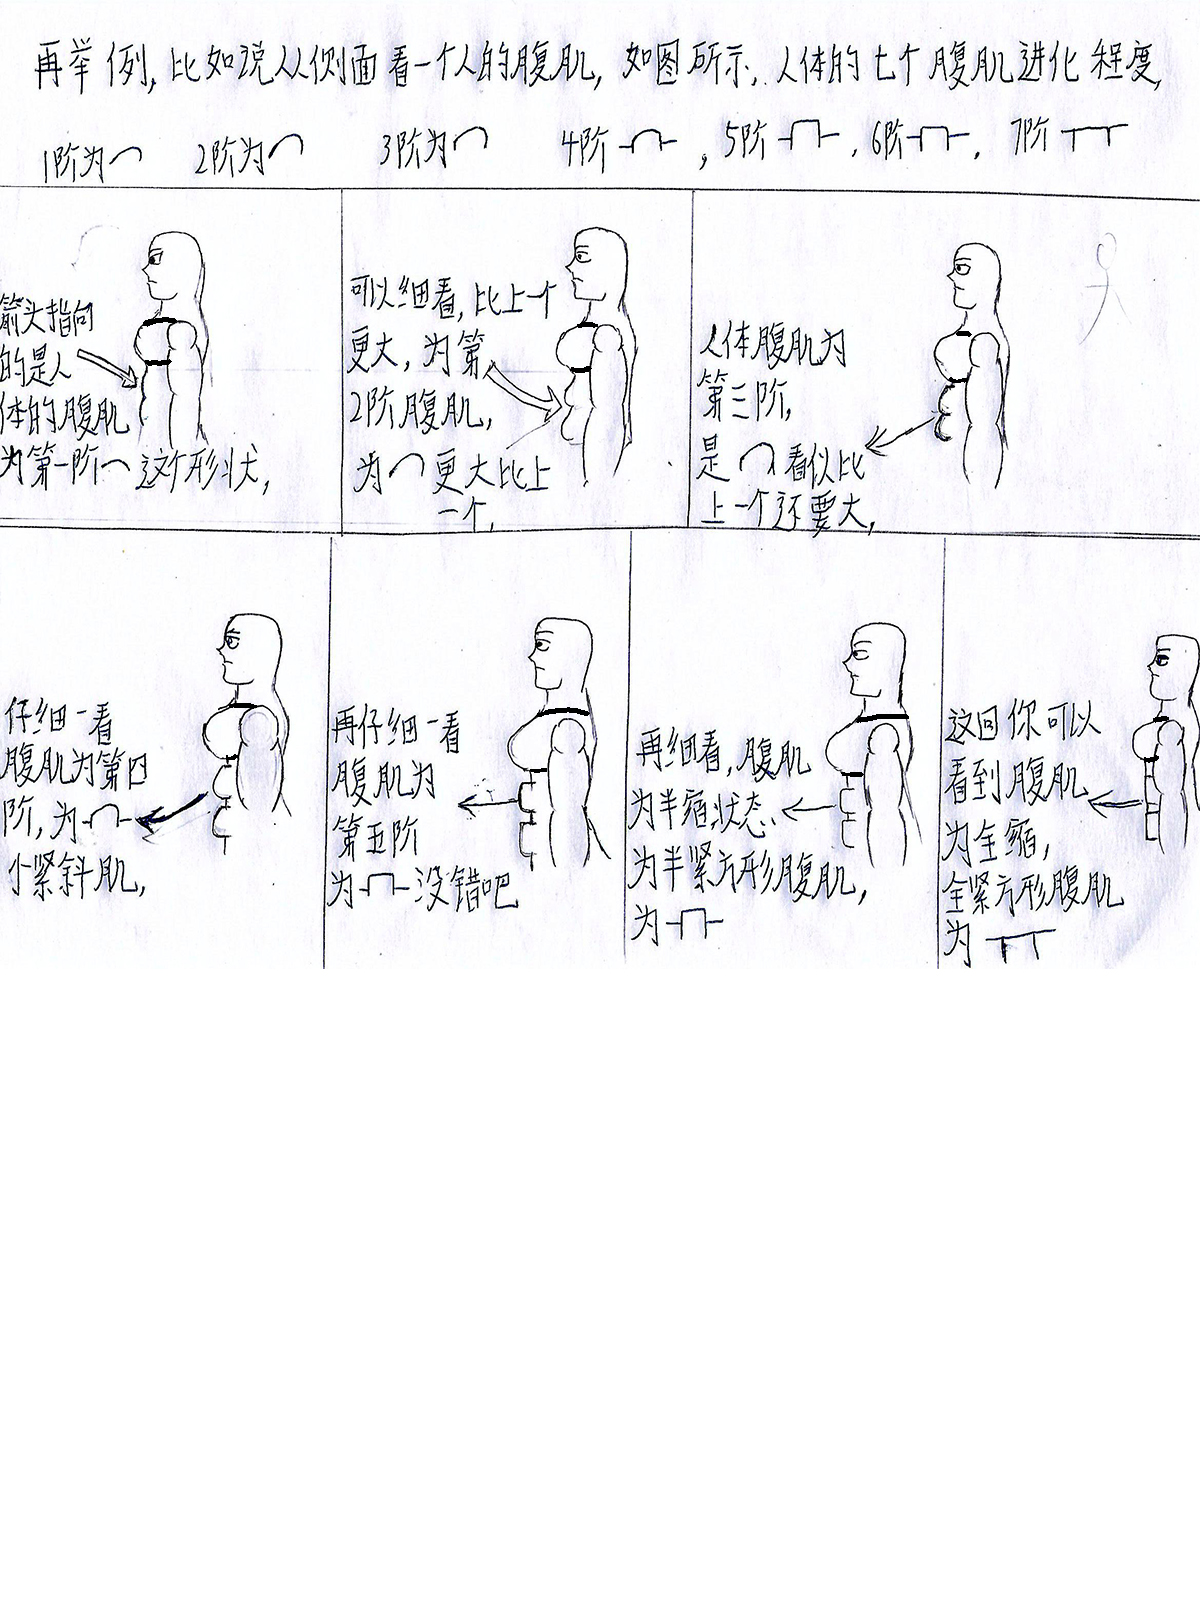 再举例,比如说从侧面看一个人的腹肌,如图所示,人体的七个腹肌进化程度,
1阶为 2阶为 3阶为 4阶 ,5阶 ,6阶 , 7阶
箭头指向
的是人
体的腹肌
为第一阶 这个形状,
可以细看,比上一个
更大,为第
2阶腹肌,
为 更大比上
一个,
人体腹肌为
第三阶,
是 看似比
上一个还要大,
仔细一看
腹肌为第四
阶,为
小紧斜肌,
再仔细一看
腹肌为
第五阶
为 没错吧
再细看,腹肌
为半缩状态,
为半紧方形腹肌,
为
这回你可以
看到腹肌
为全缩,
全紧方形腹肌
为